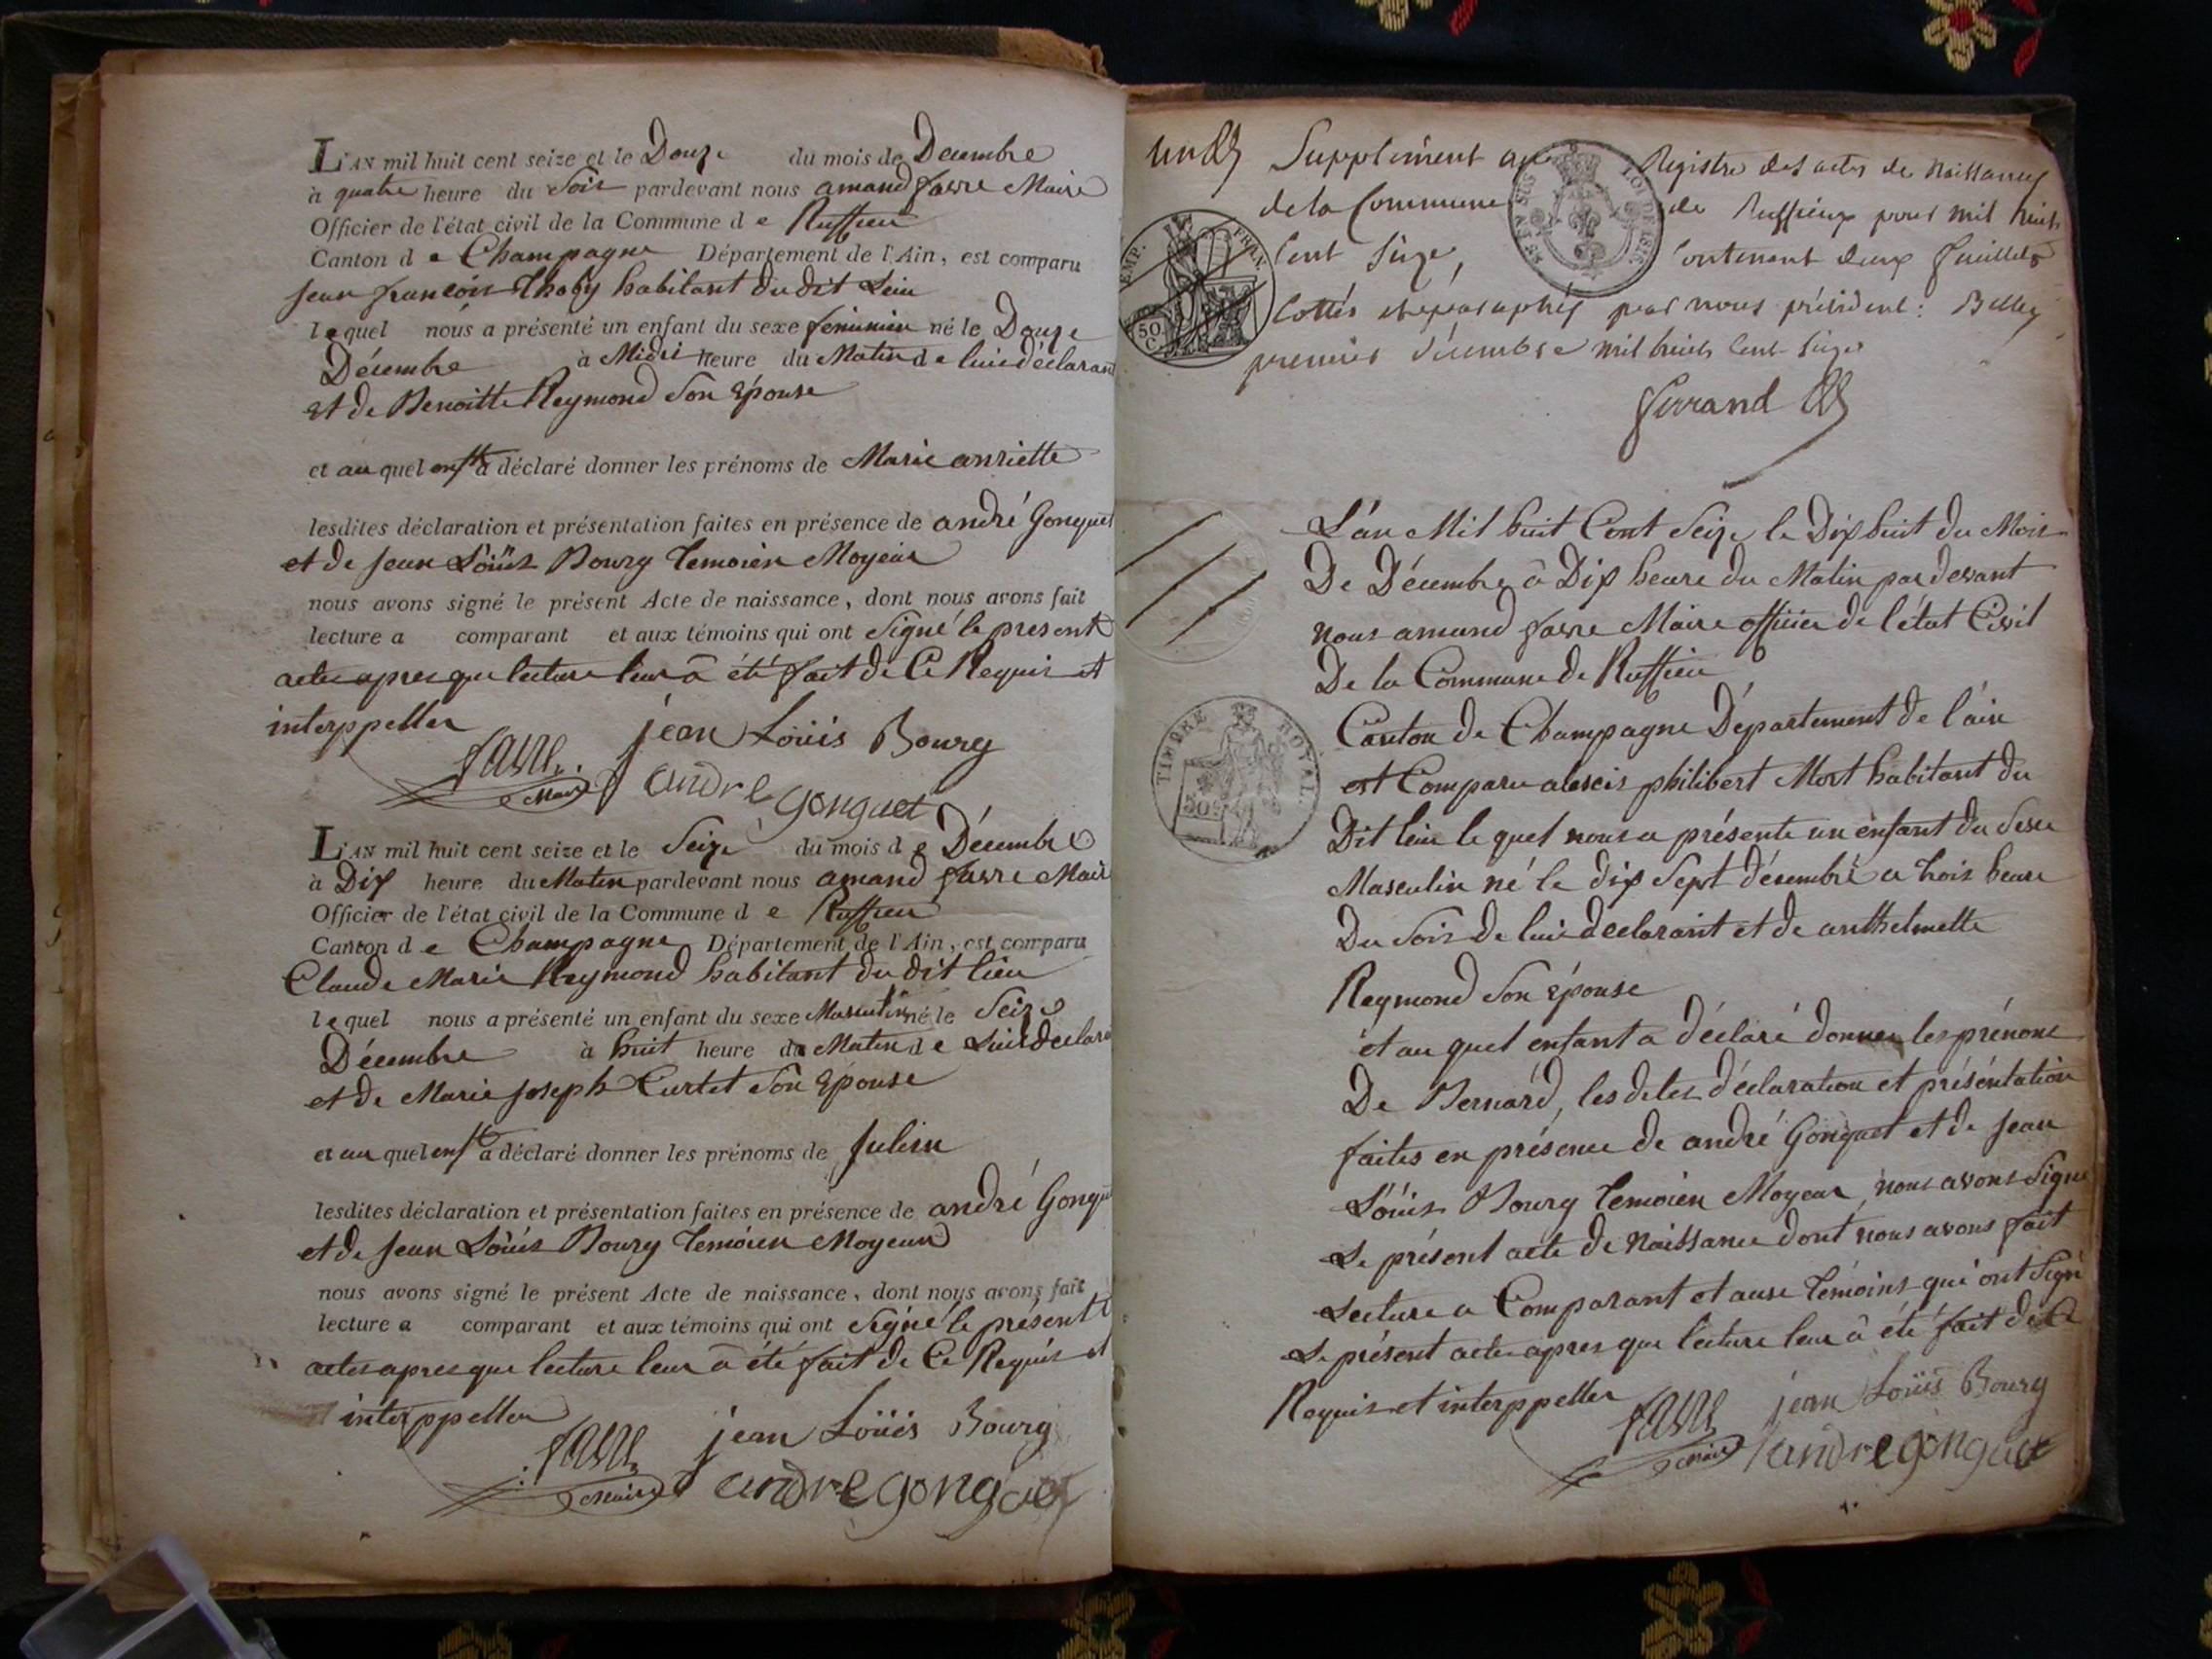 L'AN mil huit cent seize et le Douze du mois de Decembre
à quatre heure du Soir pardevant nous amand favre Maire
Officier de l'état civil de la Commune d e Ruffieu
Canton d e Champagne Département de l'Ain, est comparu
jean francois Thoby habitant du dit Lieu
lequel nous a présenté un enfant du sexe feminin né le Douze
Décembre à Midi heure du Matin d e lui déclarant
et de Benoitte Reymond son Epouse
et au quel enft a déclaré donner les prénoms de Marie anriette
lesdites déclaration et présentation faites en présence de andré Gonguet
et de jean Loüis Bourg temoien Moyeur
nous avons signé le présent Acte de naissance, dont nous avons fait
lecture a comparant et aux témoins qui ont Signé le present
acte apres que lecture leur a été fait de Ce Requis et
interppeller
favre Maire jean Loüis Bourg
andre gonguet
L'AN mil huit cent seize et le Seize du mois d e Décembre
à Dix heure du Matin pardevant nous amand favre Maire
Officier de l'état civil de la Commune d e Ruffieu
Canton d e Champagne Département de l'Ain, est comparu
Claude Marie Reymond habitant du dit lieu
lequel nous a présenté un enfant du sexe Masculin né le Seize
Décembre à huit heure du Matin d e Lui déclara
et de Marie joseph Curtet son Epouse
et au quel enft a déclaré donner les prénoms de julien
lesdites déclaration et présentation faites en présence de andré Gongu
et de jean Loüis Bourg temoien Moyeur
nous avons signé le présent Acte de naissance, dont nous avons fait
lecture a comparant et aux témoins qui ont Signé le présent
acte apres que lecture leur a été fait de Ce Requis et
interppeller
favre maire jean Loüis Bourg
andre gonguet
un Supplément au Registre des actes de Naissances
de la Commune de Ruffieux pour mil huit
Cent Seize, Contenant deux feuillets
Cottés et paraphés par nous président : Belley
premier décembre mil huit Cent Seize
ferrand
TIMBRE ROYAL
50
L'an Mil huit Cent Seize le Dix huit du Mois
De Décembre à Dix heure du Matin par devant
nous amand favre Maire officier de l'état Civil
De la Commune de Ruffieu
Canton de Champagne Département de l'ain
est Comparu alexcis philibert Mort habitant du
Dit lieu le quel nous a présente un enfant du sexe
Masculin né le dix Sept décembre a trois heure
Du Soir de lui declarant et de anthelmette
Reymond Son épouse
et au quel enfant a déclaré donner les prénoms
De Bernard, les dites déclaration et présentation
faites en présence de andré Gonguet et de jean
Loüis Bourg temoien Moyeur, nous avons Signé
Le présent acte de Naissance dont nous avons fait
Lecture a Comparant et aux témoins qui ont Signé
Le présent acte apres que lecture leur à été fait de Ce
Requis et interppeller
favre maire jean Loüis Bourg
andre gonguet